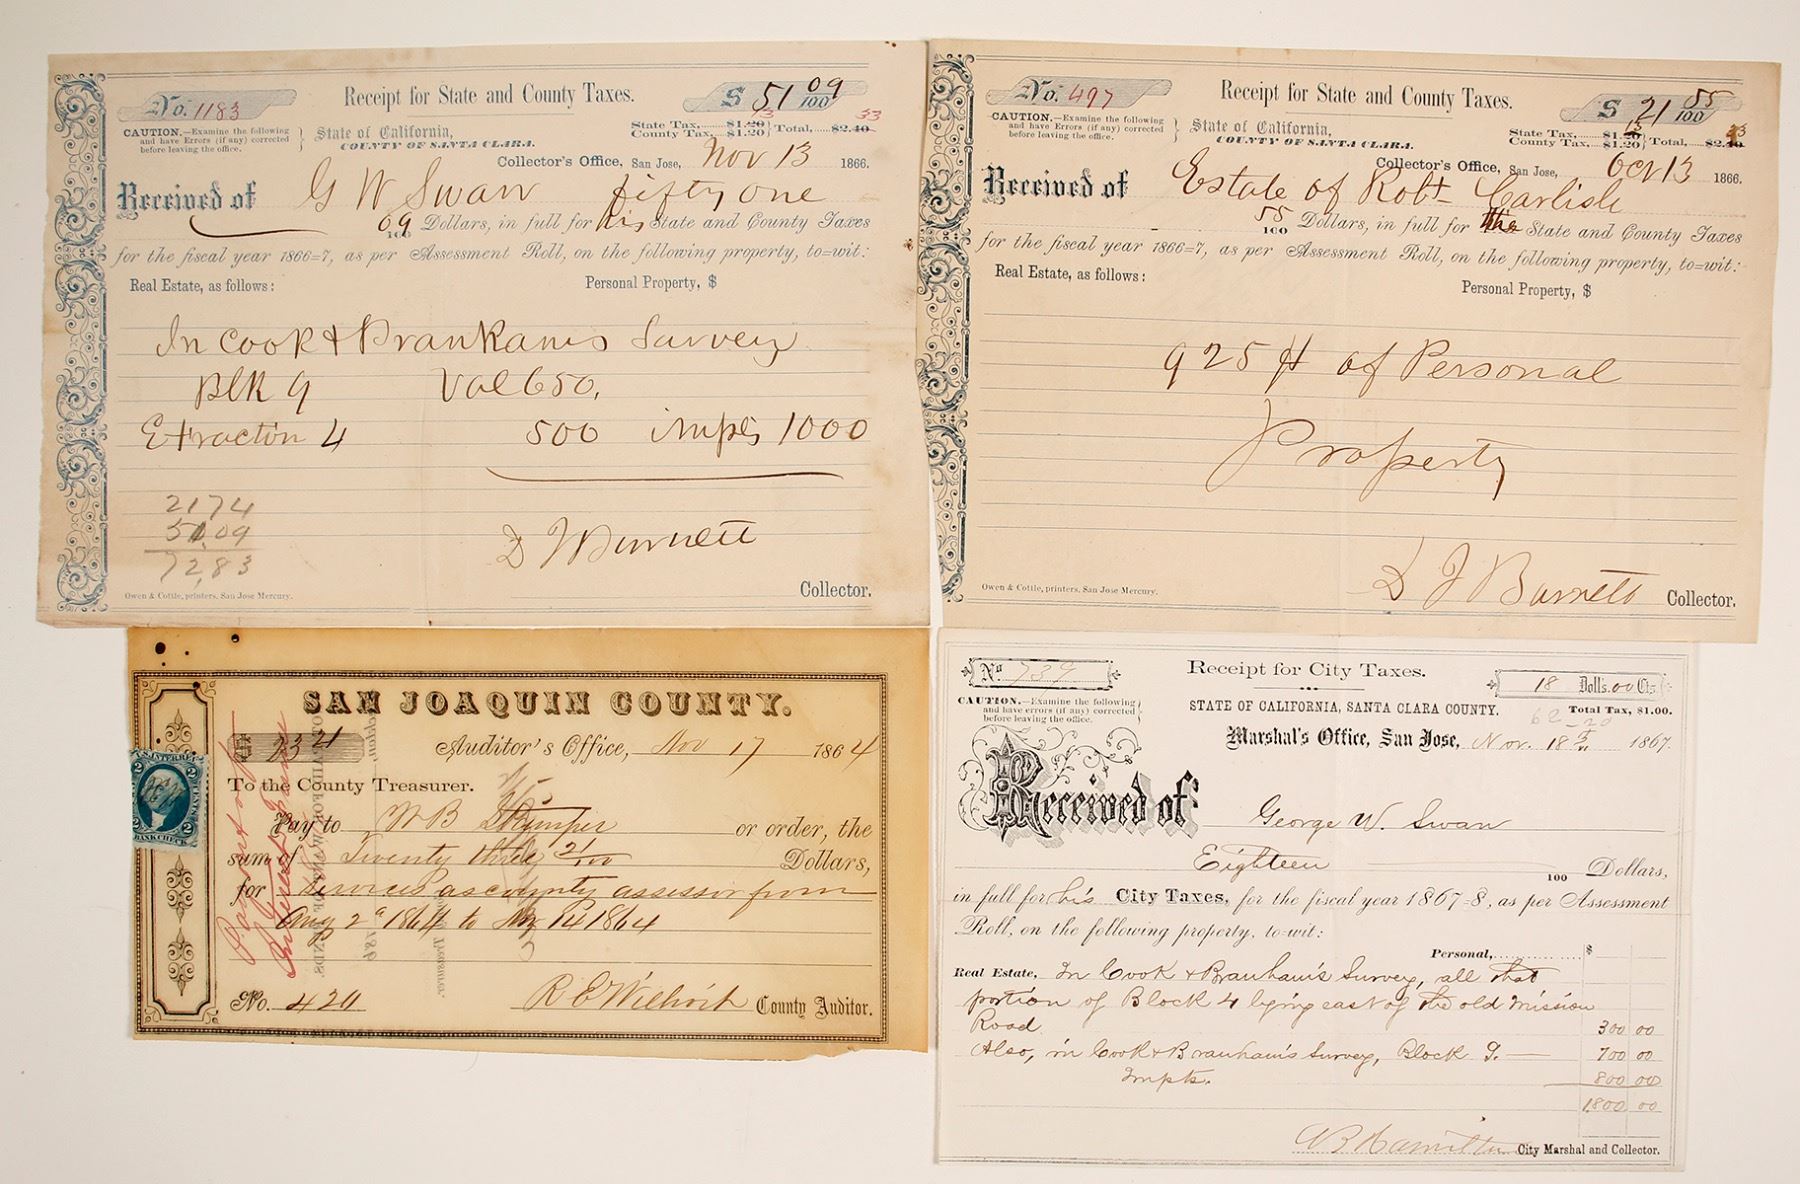 No. 1183
Receipt for State and County Taxes.
$ 51 09/100
CAUTION.—Examine the following
and have Errors (if any) corrected
before leaving the office.
State of California,
COUNTY OF SANTA CLARA.
State Tax, $1.20
County Tax, $1.20
Total, $2.40
33
Collector's Office, San Jose, Nov 13 1866.
Received of G W Swan fifty one
09/100 Dollars, in full for his State and County Taxes
for the fiscal year 1866=7, as per Assessment Roll, on the following property, to=wit:
Real Estate, as follows: Personal Property, $
In Cook & Brankams Survey
Blk 9 Val 650,
4 500 impts 1000
2174
51.09
72,83
D J Burnett
Collector.
Owen & Cottle, printers, San Jose Mercury.
No. 497
Receipt for State and County Taxes.
$ 21 55/100
CAUTION.—Examine the following
and have Errors (if any) corrected
before leaving the office.
State of California,
COUNTY OF SANTA CLARA.
State Tax, $1.20
County Tax, $1.20
Total, $2.40
Collector's Office, San Jose, Oct 13 1866.
Received of Estate of Robt Carlisle
55/100 Dollars, in full for the State and County Taxes
for the fiscal year 1866=7, as per Assessment Roll, on the following property, to=wit:
Real Estate, as follows: Personal Property, $
925 $ of Personal
Property
D J Burnett Collector.
Owen & Cottle, printers, San Jose Mercury.
SAN JOAQUIN COUNTY.
$ 23 21
Auditor's Office, Nov 17 1864
To the County Treasurer.
Pay to W B or order, the
sum of Twenty three 21/100 Dollars,
for Services as county assessor from
Aug 2d 1864 to 14 1864
No. 420
County Auditor.
U.S. INTER. REV.
2 2
BANK CHECK
No 739
Receipt for City Taxes.
18 Dolls. 00 Cts.
CAUTION.—Examine the following
and have Errors (if any) corrected
before leaving the office.
STATE OF CALIFORNIA, SANTA CLARA COUNTY.
Total Tax, $1.00.
Marshal's Office, San Jose, Nov. 18 1867.
Received of George W. Swan
Eighteen 100 Dollars,
in full for his City Taxes, for the fiscal year 1867=8, as per Assessment
Roll, on the following property, to=wit:
Personal, $
Real Estate, In Cook & Branham's Survey, all that
portion of Block 4 lying east of the old Mission
Road 300 00
Also, in Cook & Branham's Survey, Block 9. 700 00
Impts. 800 00
1800 00
Hamilton City Marshal and Collector.